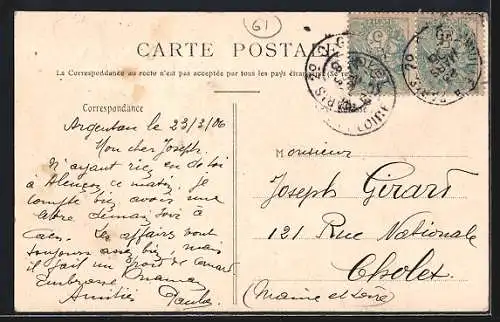 61
CARTE POSTALE
La Correspondance au recto n'est pas acceptée par tous les pays étrangers (Se re
Correspondance
Argentan le 23/2/06
Mon cher Joseph,
N'ayant rien eu de toi
à Alençon ce matin, je
compte bien avoir une
lettre demain soir à
Caen. Les affaires vont
toujours assez bien, mais
il fait un froid de canard
Embrasse maman
Amitiés
Monsieur
Joseph Girard
121 Rue Nationale
Cholet
(Maine et Loire)